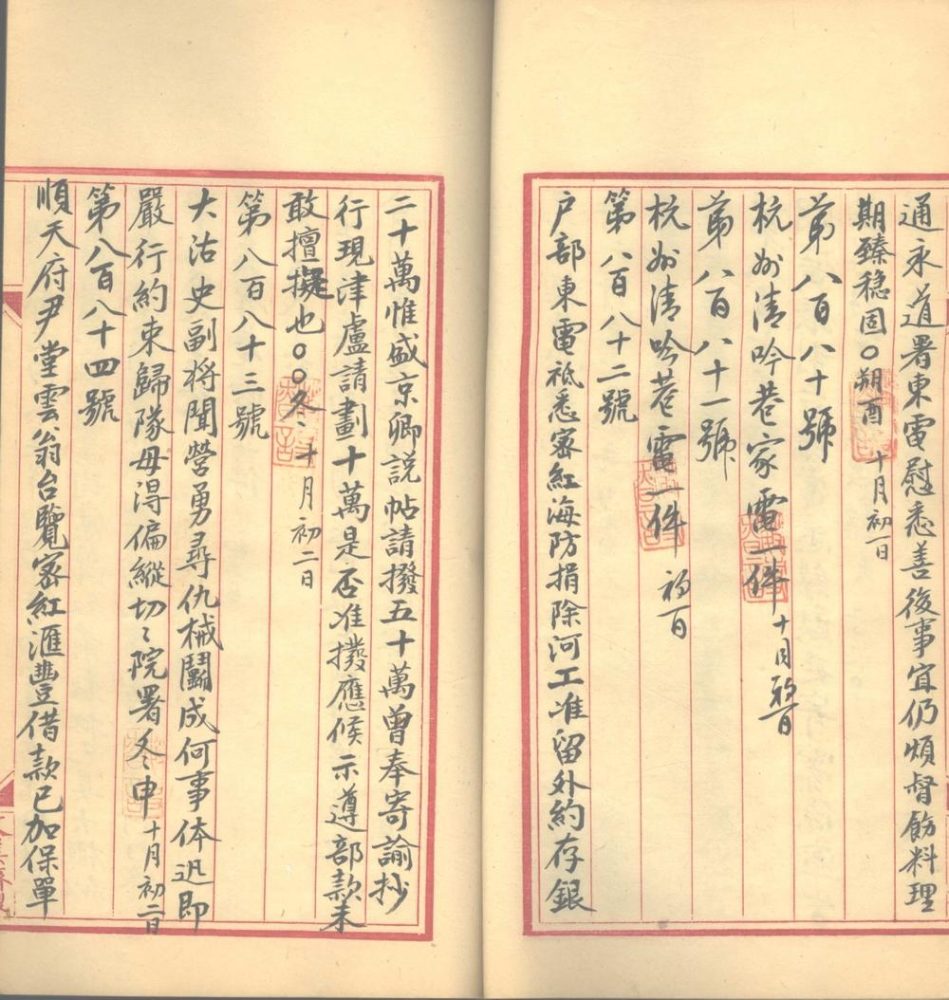 通永道署東電慰悉善後事宜仍煩督飭料理
期臻穩固〇朔酉 十月初一日
第八百八十號
杭州清吟巷家電一件 十月初一日
第八百八十一號
杭州清吟巷電一件 初一日
第八百八十二號
戶部東電祗悉密紅海防捐除河工准留外約存銀
二十萬惟盛京卿說帖請撥五十萬曾奉寄諭抄
行現津盧請劃十萬是否准撥應候示遵部款未
敢擅擬也〇〇冬 十月初二日
第八百八十三號
大沽史副將聞營勇尋仇械鬭成何事体迅即
嚴行約束歸隊毋淂偏縱切〻院署冬申 十月初二日
第八百八十四號
順天府尹堂雲翁台覽密紅滙豐借款已加保單